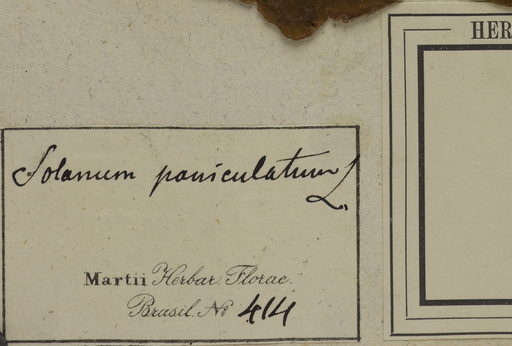 HER
Solanum paniculatum L.
Martii Herbar. Florae
Brasil. No 414